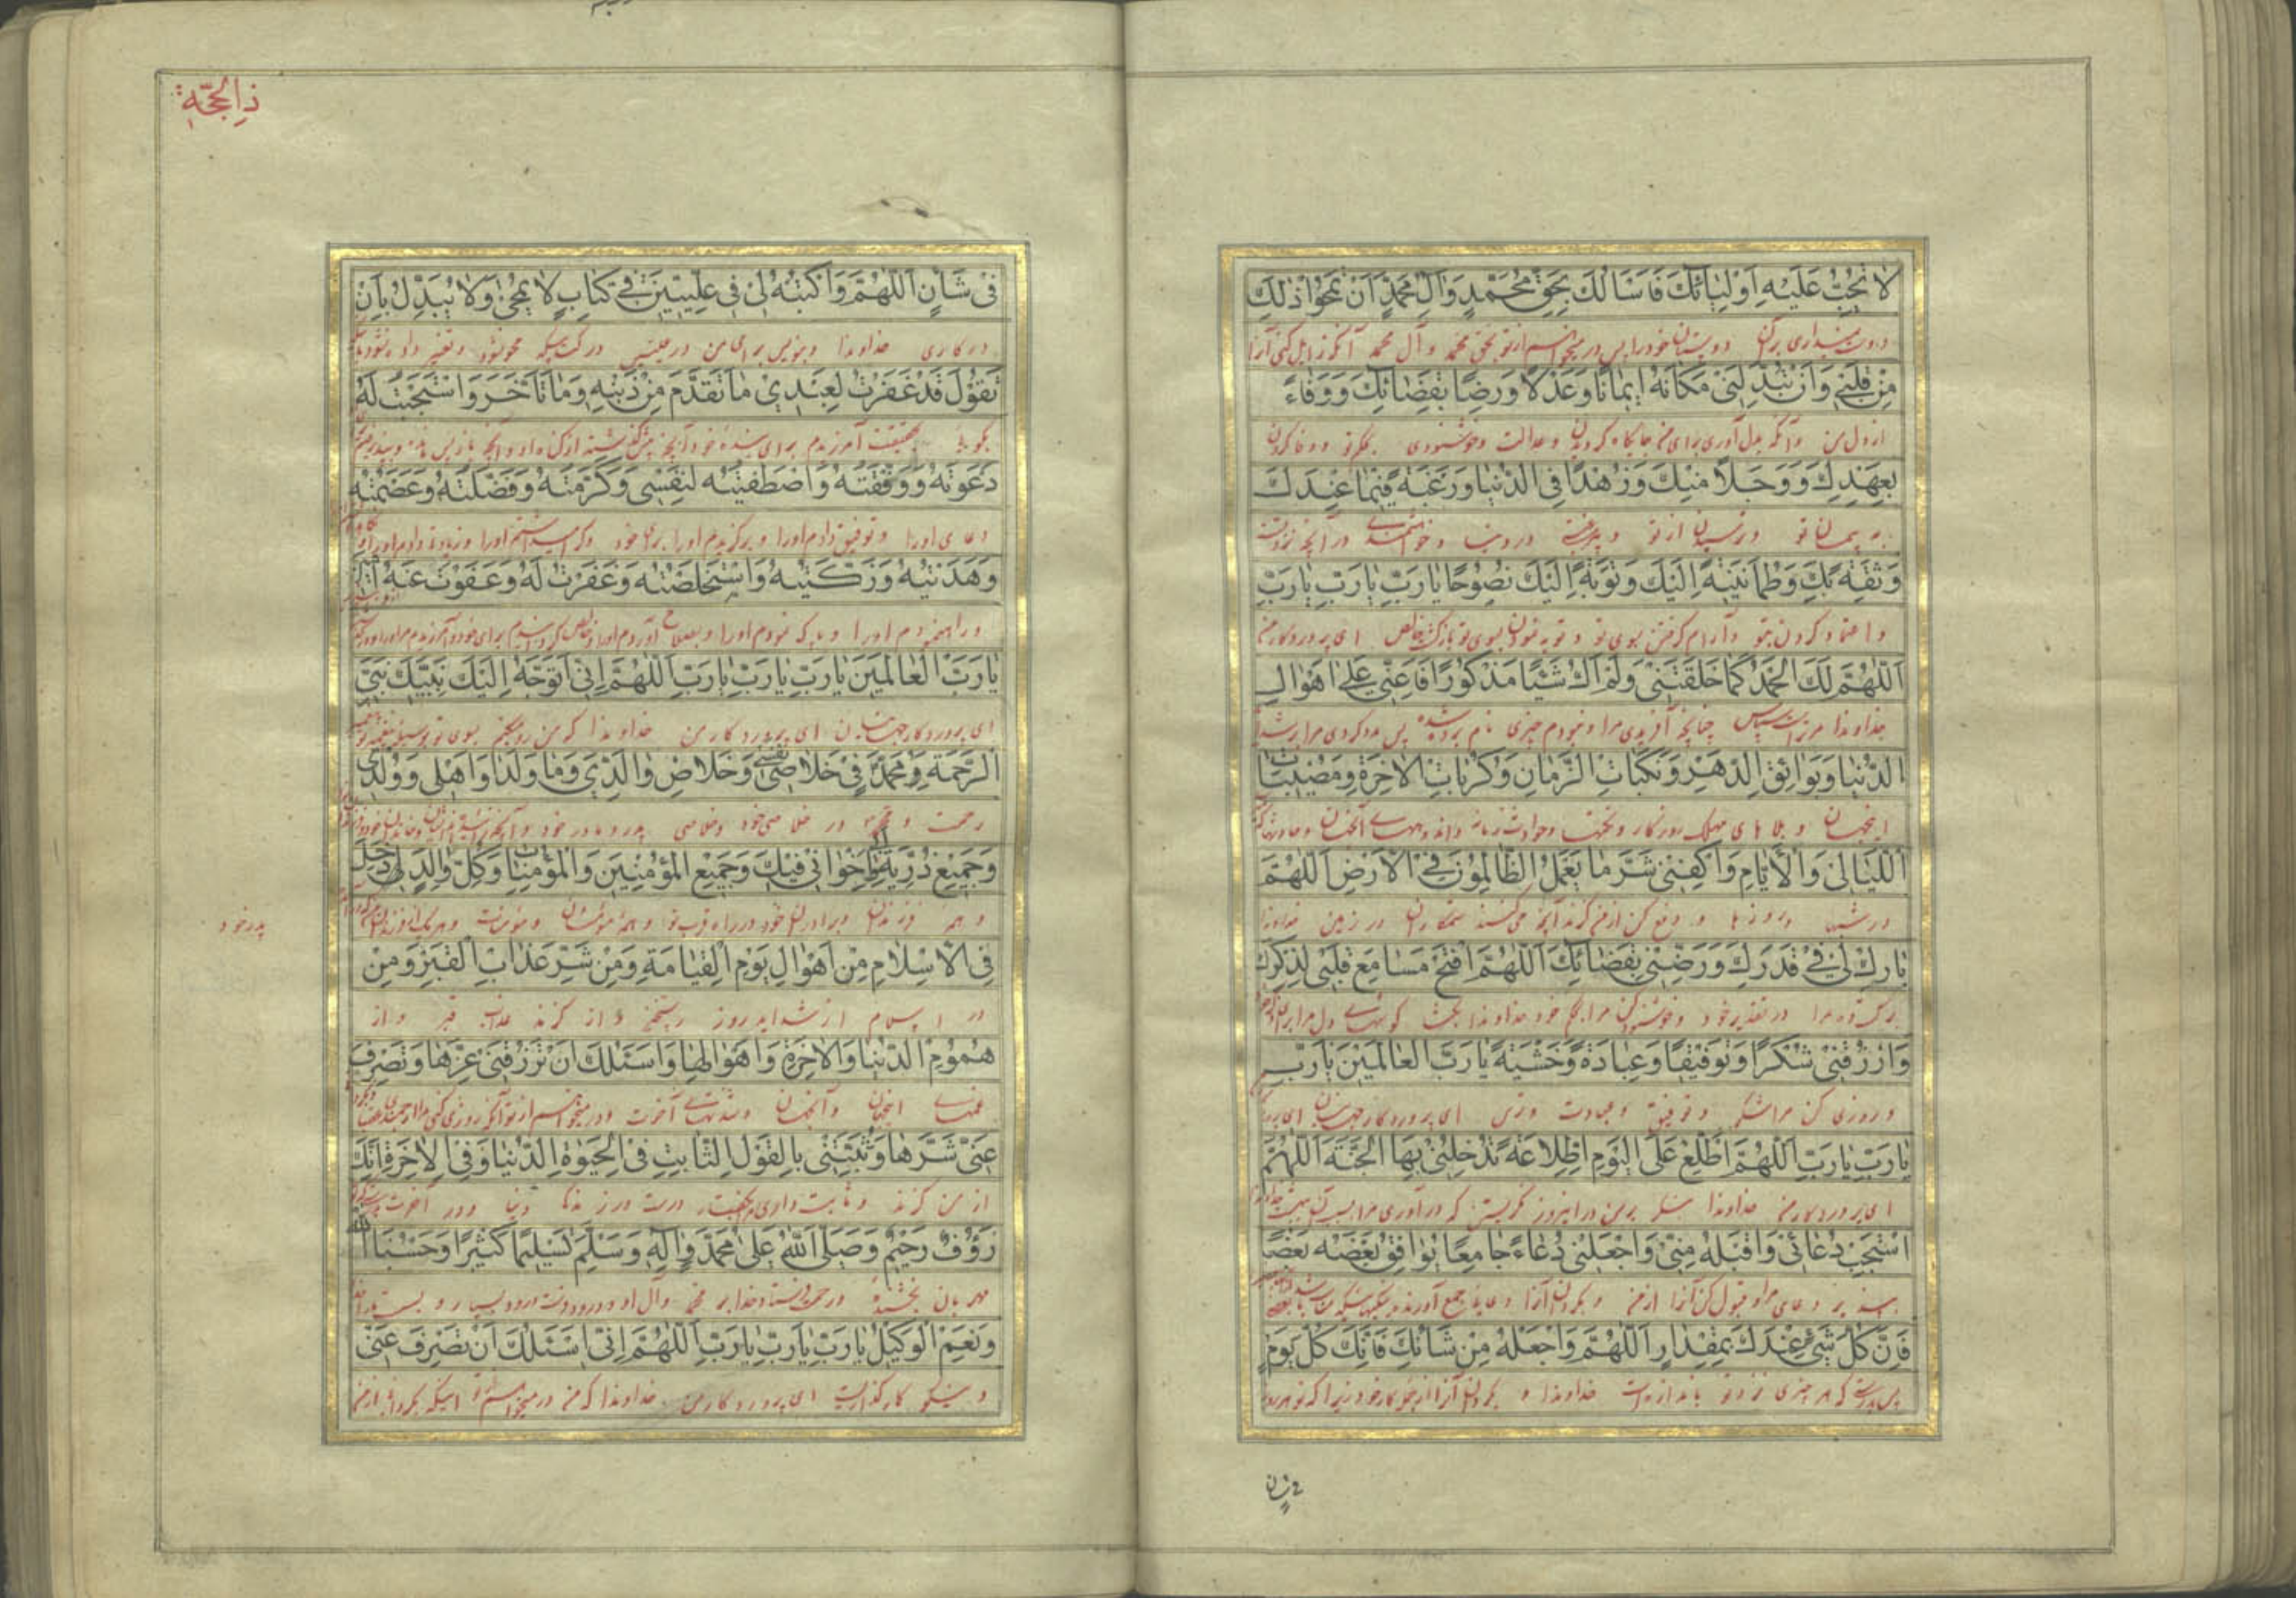 لا تُحِبُّ عَلَيْهِ اَوْلِيٰائَكَ فَاَسْاَلُكَ بِحَقِّ مُحَمَّدٍ وَاٰلِ مُحَمَّدٍ اَنْ تَمْحُوَا ذٰلِكَ
دوست نمیداری برآن دوستان خود را پس در میخواهم از تو بحق محمد و آل محمد آنکه زایل کنی آنرا
مِنْ قَلْبِى وَاَنْ تُبَدِّلَنِى مَكٰانَهُ اِيمٰانًا وَعَدْلًا وَرِضًا بِقَضٰائِكَ وَوَفٰاءً
از دل من و آنکه بدل آوری برای من جایگاه گرویدن و عدالت و خوشنودی بحکم تو و وفا کردن
بِعَهْدِكَ وَوَجَلًا مِنْكَ وَزُهْدًا فِى الدُّنْيٰا وَرَغْبَةً فِيمٰا عِنْدَكَ
به پیمان تو و ترسیدن از تو و در دنیا و در آنچه نزد تست
وَثِقَةً بِكَ وَطُمَاْنِينَةً اِلَيْكَ وَتَوْبَةً اِلَيْكَ نَصُوحًا يٰا رَبِّ يٰا رَبِّ يٰا رَبِّ
و اعتماد کردن بتو و آرام گرفتن بسوی تو و توبه نمودن بسوی تو بازگشت خالص ای پروردگار من
اَللّٰهُمَّ لَكَ الْحَمْدُ كَمٰا خَلَقْتَنِى وَلَمْ اَكُ شَيْئًا مَذْكُورًا فَاَعِنِّى عَلٰى اَهْوٰالِ
خداوندا مر تراست سپاس چنانچه آفریدی مرا و نبودم چیزی نام برده شده پس مدد کردی مرا بر شداید
الدُّنْيٰا وَبَوٰائِقِ الدَّهْرِ وَنَكَبٰاتِ الزَّمٰانِ وَكُرُبٰاتِ الْاٰخِرَةِ وَمُصِيبٰاتِ
اینجهان و بلاهای مهلک روزگار و نکبتها و حوادث زمانه و اندوههای آنجهان و
اللَّيٰالِى وَالْاَيّٰامِ وَاكْفِنِى شَرَّ مٰا يَعْمَلُ الظّٰالِمُونَ فِى الْاَرْضِ اَللّٰهُمَّ
در شبها و روزها و دفع کن از من گزند آنچه می‌کنند ستمکاران در زمین خداوندا
بٰارِكْ لِى فِى قَدَرِكَ وَرَضِّنِى بِقَضٰائِكَ اَللّٰهُمَّ افْتَحْ مَسٰامِعَ قَلْبِى لِذِكْرِكَ
برکت ده مرا در تقدیر خود و خوشنود کن مرا بحکم خود خداوندا بگشا گوشهای دل مرا برای
وَارْزُقْنِى شُكْرًا وَتَوْفِيقًا وَعِبٰادَةً وَخَشْيَةً يٰا رَبَّ الْعٰالَمِينَ يٰا رَبِّ
و روزی کن مرا شکر و توفیق و عبادت و ترس ای پروردگار جهانیان ای
يٰا رَبِّ يٰا رَبِّ اَللّٰهُمَّ اطَّلِعْ عَلَىَّ الْيَوْمَ اِطِّلٰاعَةً تُدْخِلُنِى بِهَا الْجَنَّةَ اَللّٰهُمَّ
ای پروردگار من خداوندا بنگر بر من در امروز نگریستنی که در آوری مرا بسبب آن بهشت خداوندا
اسْتَجِبْ دُعٰائِى وَاقْبَلْهُ مِنِّى وَاجْعَلْنِى دُعٰاءً جٰامِعًا يُوٰافِقُ بَعْضُهُ بَعْضًا
بپذیر دعای مرا و قبول کن آنرا از من و بگردان آنرا دعای جمع آورنده
فَاِنَّ كُلَّ شَىْءٍ عِنْدَكَ بِمِقْدٰارٍ اَللّٰهُمَّ وَاجْعَلْهُ مِنْ شَاْنِكَ فَاِنَّكَ كُلَّ يَوْمٍ
پس بدرستی که هر چیزی نزد تو باندازه است خداوندا و بگردان آنرا از کار خود زیرا که تو هر روز
فى شان
ذا الحجّة
فِى شَاْنٍ اَللّٰهُمَّ وَاكْتُبْهُ لِى فِى عِلِّيِّينَ فِى كِتٰابٍ لا يُمْحٰى وَلا يُبَدَّلُ بِاَنْ
در کاری خداوندا و بنویس برای من در علیین در کتابیکه محو نشود و تغییر داده نشود
تَقُولَ قَدْ غَفَرْتُ لِعَبْدِى مٰا تَقَدَّمَ مِنْ ذَنْبِهِ وَمٰا تَاَخَّرَ وَاسْتَجَبْتُ لَهُ
بگویی بحقیقت آمرزیدم برای بنده خود آنچه پیش گذشته از گناه او و آنچه باز پس مانده و پذیرفتم
دَعْوَتَهُ وَوَفَّقْتُهُ وَاصْطَفَيْتُهُ لِنَفْسِى وَكَرَّمْتُهُ وَفَضَّلْتُهُ وَعَصَمْتُهُ
دعای او را و توفیق دادم او را و برگزیدم او را برای خود و گرامی داشتم او را و زیادتی دادم او را
وَهَدَيْتُهُ وَزَكَّيْتُهُ وَاسْتَخْلَصْتُهُ وَغَفَرْتُ لَهُ وَعَفَوْتُ عَنْهُ اٰمِينَ
و راهنمودم او را و پاک نمودم او را و بصلاح آوردم او را
يٰا رَبَّ الْعٰالَمِينَ يٰا رَبِّ يٰا رَبِّ يٰا رَبِّ اَللّٰهُمَّ اِنِّى اَتَوَجَّهُ اِلَيْكَ بِنَبِيِّكَ نَبِىِّ
ای پروردگار جهانیان ای پروردگار من خداوندا که من رو میکنم بسوی تو بوسیله پیغمبر تو
الرَّحْمَةِ مُحَمَّدٍ فِى خَلٰاصِى نَفْسِى وَخَلٰاصِ وٰالِدَىَّ وَمٰا وَلَدٰا وَاَهْلِى وَوُلْدِى
رحمت و محمد در خلاصی خود و خلاصی پدر و مادر خود و
وَجَمِيعِ ذُرِّيَّتِى وَاِخْوٰانِى فِيكَ وَجَمِيعِ الْمُؤْمِنِينَ وَالْمُؤْمِنٰاتِ وَكُلِّ وٰالِدٍ لِى دَخَلَ
و همه فرزندان و برادران خود در راه قرب تو و همه مؤمنان و مؤمنات و هر یک از
پدر خود
فِى الْاِسْلٰامِ مِنْ اَهْوٰالِ يَوْمِ الْقِيٰامَةِ وَمِنْ شَرِّ عَذٰابِ الْقَبْرِ وَمِنْ
در اسلام از شداید روز رستخیز و از گزند عذاب قبر و از
هُمُومِ الدُّنْيٰا وَالْاٰخِرَةِ وَاَهْوٰالِهٰا وَاَسْئَلُكَ اَنْ تَرْزُقَنِى عِزَّهٰا وَتَصْرِفَ
غمهای اینجهان و آنجهان و شدتهای آخرت و در میخواهم از تو آنکه روزی کنی مرا
عَنِّى شَرَّهٰا وَتُثَبِّتَنِى بِالْقَوْلِ الثّٰابِتِ فِى الْحَيٰوةِ الدُّنْيٰا وَفِى الْاٰخِرَةِ اِنَّكَ
از من گزند و ثابت داری مرا بگفتار درست در زندگانی دنیا و در آخرت
رَؤُفٌ رَحِيمٌ وَصَلَّى اللّٰهُ عَلٰى مُحَمَّدٍ وَاٰلِهِ وَسَلَّمَ تَسْلِيمًا كَثِيرًا وَحَسْبُنَا اللّٰهُ
مهربان بخشنده و رحمت فرستاد خدا بر محمد و آل او و درود فرستاد درود بسیار و بس است ما را خدا
وَنِعْمَ الْوَكِيلُ يٰا رَبِّ يٰا رَبِّ يٰا رَبِّ اَللّٰهُمَّ اِنِّى اَسْئَلُكَ اَنْ تَصْرِفَ عَنِّى
و نیکو کارگذاریست ای پروردگار من خداوندا که من در میخواهم از تو اینکه بگردانی از من